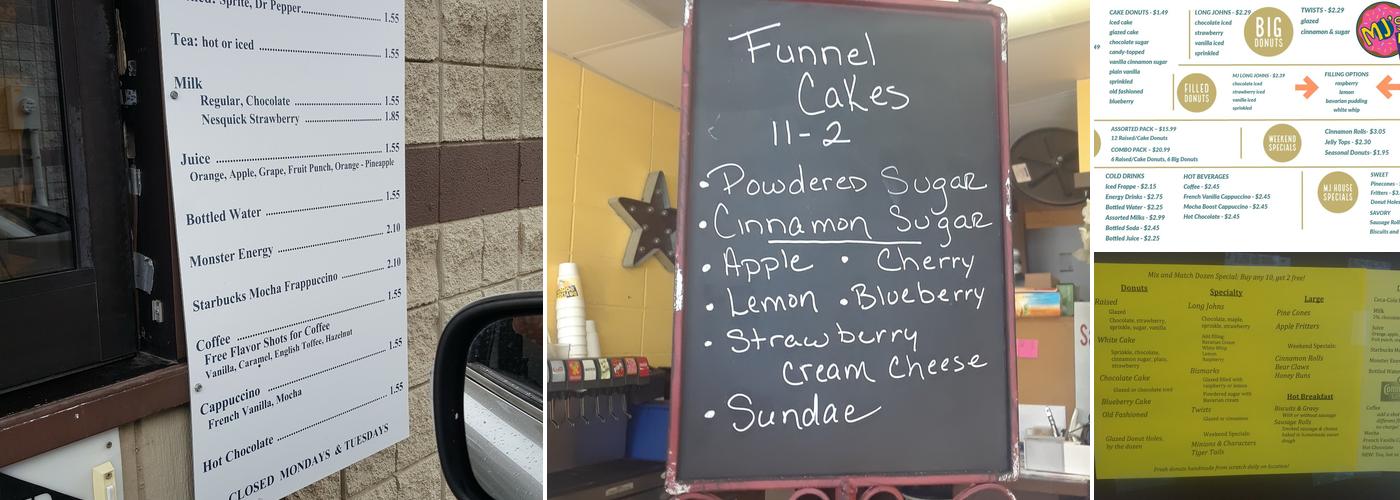 Sprite, Dr Pepper 1.55
Tea: hot or iced 1.55
Milk
Regular, Chocolate 1.55
Nesquick Strawberry 1.85
Juice 1.55
Orange, Apple, Grape, Fruit Punch, Orange - Pineapple
Bottled Water 1.55
Monster Energy 2.10
Starbucks Mocha Frappuccino 2.10
Coffee 1.55
Free Flavor Shots for Coffee
Vanilla, Caramel, English Toffee, Hazelnut
Cappuccino 1.55
French Vanilla, Mocha
Hot Chocolate 1.55
CLOSED MONDAYS & TUESDAYS
Funnel
Cakes
11-2
• Powdered Sugar
• Cinnamon Sugar
• Apple • Cherry
• Lemon • Blueberry
• Strawberry
cream Cheese
• Sundae
CAKE DONUTS - $1.49
iced cake
glazed cake
chocolate sugar
candy-topped
vanilla cinnamon sugar
plain vanilla
sprinkled
old fashioned
blueberry
LONG JOHNS - $2.29
chocolate iced
strawberry
vanilla iced
sprinkled
BIG
DONUTS
TWISTS - $2.29
glazed
cinnamon & sugar
MJ's
FILLED
DONUTS
MJ LONG JOHNS - $2.39
chocolate iced
strawberry iced
vanilla iced
sprinkled
FILLING OPTIONS
raspberry
lemon
bavarian pudding
white whip
ASSORTED PACK - $15.99
12 Raised/Cake Donuts
COMBO PACK - $20.99
6 Raised/Cake Donuts, 6 Big Donuts
WEEKEND
SPECIALS
Cinnamon Rolls- $3.05
Jelly Tops - $2.30
Seasonal Donuts- $1.95
COLD DRINKS
Iced Frappe - $2.15
Energy Drinks - $2.75
Bottled Water - $2.25
Assorted Milks - $2.99
Bottled Soda - $2.45
Bottled Juice - $2.25
HOT BEVERAGES
Coffee - $2.45
French Vanilla Cappuccino - $2.45
Mocha Boost Cappuccino - $2.45
Hot Chocolate - $2.45
MJ HOUSE
SPECIALS
SWEET
Pinecones -
Fritters - $3.
Donut Holes
SAVORY
Sausage Roll
Biscuits and
Mix and Match Dozen Special: Buy any 10, get 2 free!
Donuts
Raised
Glazed
Chocolate, strawberry,
sprinkle, sugar, vanilla
White Cake
Sprinkle, chocolate,
cinnamon sugar, plain,
strawberry
Chocolate Cake
Glazed or chocolate iced
Blueberry Cake
Old Fashioned
Glazed Donut Holes,
by the dozen
Specialty
Long Johns
Chocolate, maple,
sprinkle, strawberry
Add filling:
Bavarian Cream
White Whip
Lemon
Raspberry
Bismarks
Glazed filled with
raspberry or lemon
Powdered sugar with
Bavarian cream
Twists
Glazed or cinnamon
Weekend Specials:
Minions & Characters
Tiger Tails
Large
Pine Cones
Apple Fritters
Weekend Specials:
Cinnamon Rolls
Bear Claws
Honey Buns
Hot Breakfast
Biscuits & Gravy
With or without sausage
Sausage Rolls
Smoked sausage & cheese
baked in homemade sweet
dough
Coca-Cola
Milk
Juice
Starbucks
Monster Ener
Bottled Water
Coffee
Mocha
French Vanilla
Hot Chocolate
Fresh donuts handmade from scratch daily on location!